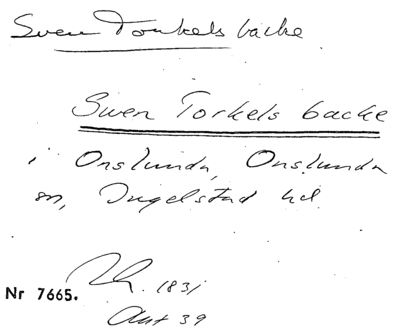 Sven Torkels backe
Swen Torkels backe
i Onslunda, Onslunda
sn, Ingelstad hd
1831
Nr 7665.
Akt 39